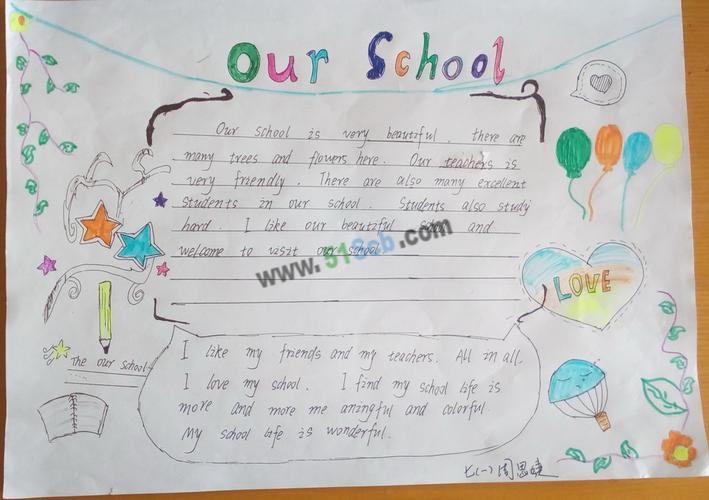 Our School
Our school is very beautiful. there are
many trees and flowers here. Our teachers is
very friendly. There are also many excellent
students in our school. Students also study
hard. I like our beautiful and
welcome to visit our school.
www.518cb.com
LOVE
The our School.
I like my friends and my teachers. All in all.
I love my school. I find my school life is
more and more me aningful and colorful.
My school life is wonderful.
七(一)周思婕